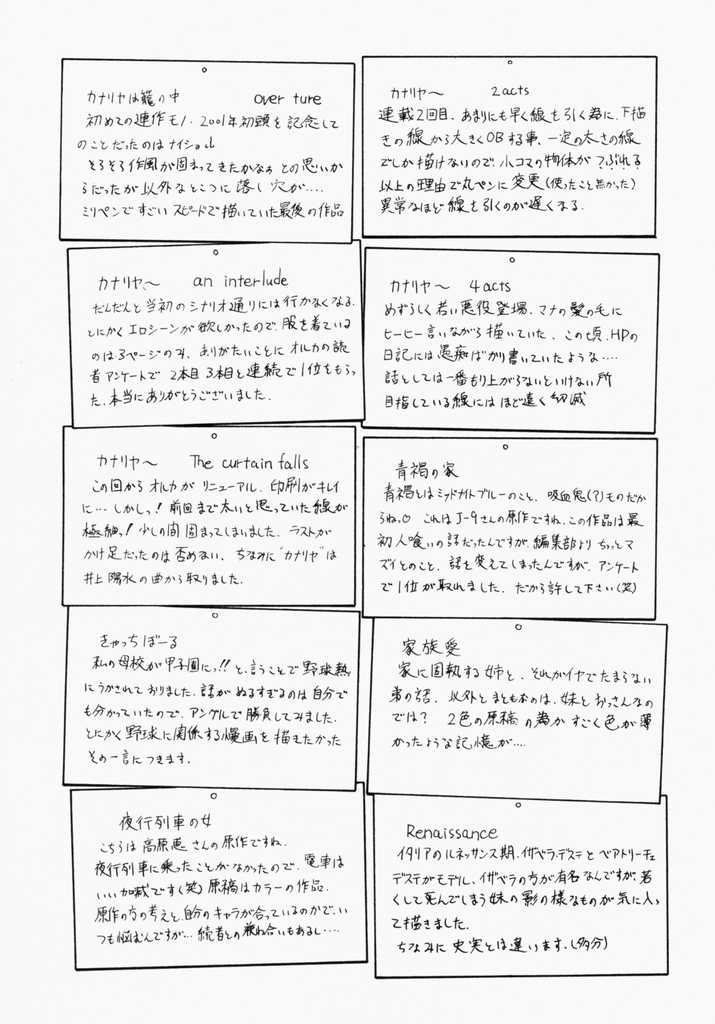 カナリヤは籠の中　over ture
初めての連作モノ・2001年初頭を記念して
のことだったのはナイショ
そろそろ作風が固まってきたかなぁ との思いか
らだったが以外なところに落し穴が….
ミリペンですごいスピードで描いていた最後の作品
カナリヤ〜　2acts
連載2回目、あまりにも早く線を引く為に、下描
きの線から大きくOBする事、一定の太さの線
でしか描けないので、小コマの物体がつぶれる
以上の理由で丸ペンに変更(使ったこと無かった)
異常なほど線を引くのが遅くなる.
カナリヤ〜　an interlude
だんだんと当初のシナリオ通りには行かなくなる.
とにかくエロシーンが欲しかったので、服を着ている
のは3ページのみ、ありがたいことにオルカの読
者アンケートで 2本目 3本目と連続で1位をもらっ
た、本当にありがとうございました.
カナリヤ〜　4acts
めずらしく若い悪役登場、マナの髪の毛に
ヒーヒー言いながら描いていた、この頃、HPの
日記には愚痴ばかり書いていたような….
話としては一番もり上がらないといけない所
目指している線にはほど遠く幻滅
カナリヤ〜　The curtain falls
この回からオルカがリニューアル、印刷がキレイ
に… しかしっ! 前回まで太いと思っていた線が
極細っ! 少しの間固まってしまいました. ラストが
かけ足だったのは否めない、ちなみに"カナリヤ"は
井上陽水の曲から取りました.
青褐の家
青褐とはミッドナイトブルーのこと、吸血鬼(?)ものだか
らね。 これはJ-9さんの原作ですね、この作品は最
初人喰いの話だったんですが、編集部よりちっとマ
ズイとのこと、話を変えてしまったんですが、アンケート
で1位が取れました、だから許して下さい(笑)
きゃっちぼーる
私の母校が甲子園にっ!!と、言うことで野球熱
にうかされておりました、話がぬるすぎるのは自分で
も分かっていたので、アングルで勝負してみました.
とにかく野球に関係する漫画を描きたかった
その一言につきます.
家族愛
家に固執する姉と、それがイヤでたまらない
弟の話、以外とまともなのは、妹とおっさんなの
では? 2色の原稿の為かすごく色が薄
かったような記憶が….
夜行列車の女
こちらは高原恵さんの原作ですね.
夜行列車に乗ったことがなかったので、電車は
いい加減です(笑) 原稿はカラーの作品.
原作の方の考えと、自分のキャラが合っているのかで、い
つも悩むんですが… 読者との兼ね合いもあるし….
Renaissance
イタリアのルネッサンス期、イザベラ・デステとベアトリーチェ
デステがモデル、イザベラの方が有名なんですが、若
くして死んでしまう妹の影の様なものが気に入っ
て描きました.
ちなみに史実とは違います.(多分)